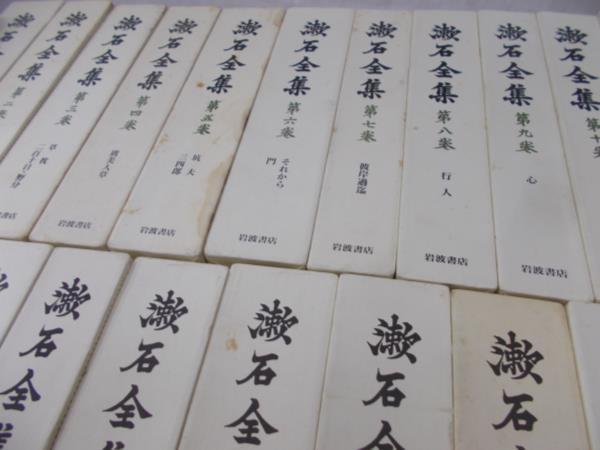 漱石全集
第二巻
漱石全集
第三巻
草枕
二百十日・野分
漱石全集
第四巻
虞美人草
漱石全集
第五巻
坑夫
三四郎
漱石全集
第六巻
それから
門
岩波書店
漱石全集
第七巻
彼岸過迄
岩波書店
漱石全集
第八巻
行人
岩波書店
漱石全集
第九巻
心
岩波書店
漱石全集
第十
漱石全
漱石全集
漱石全集
漱石全
漱石全
漱石全